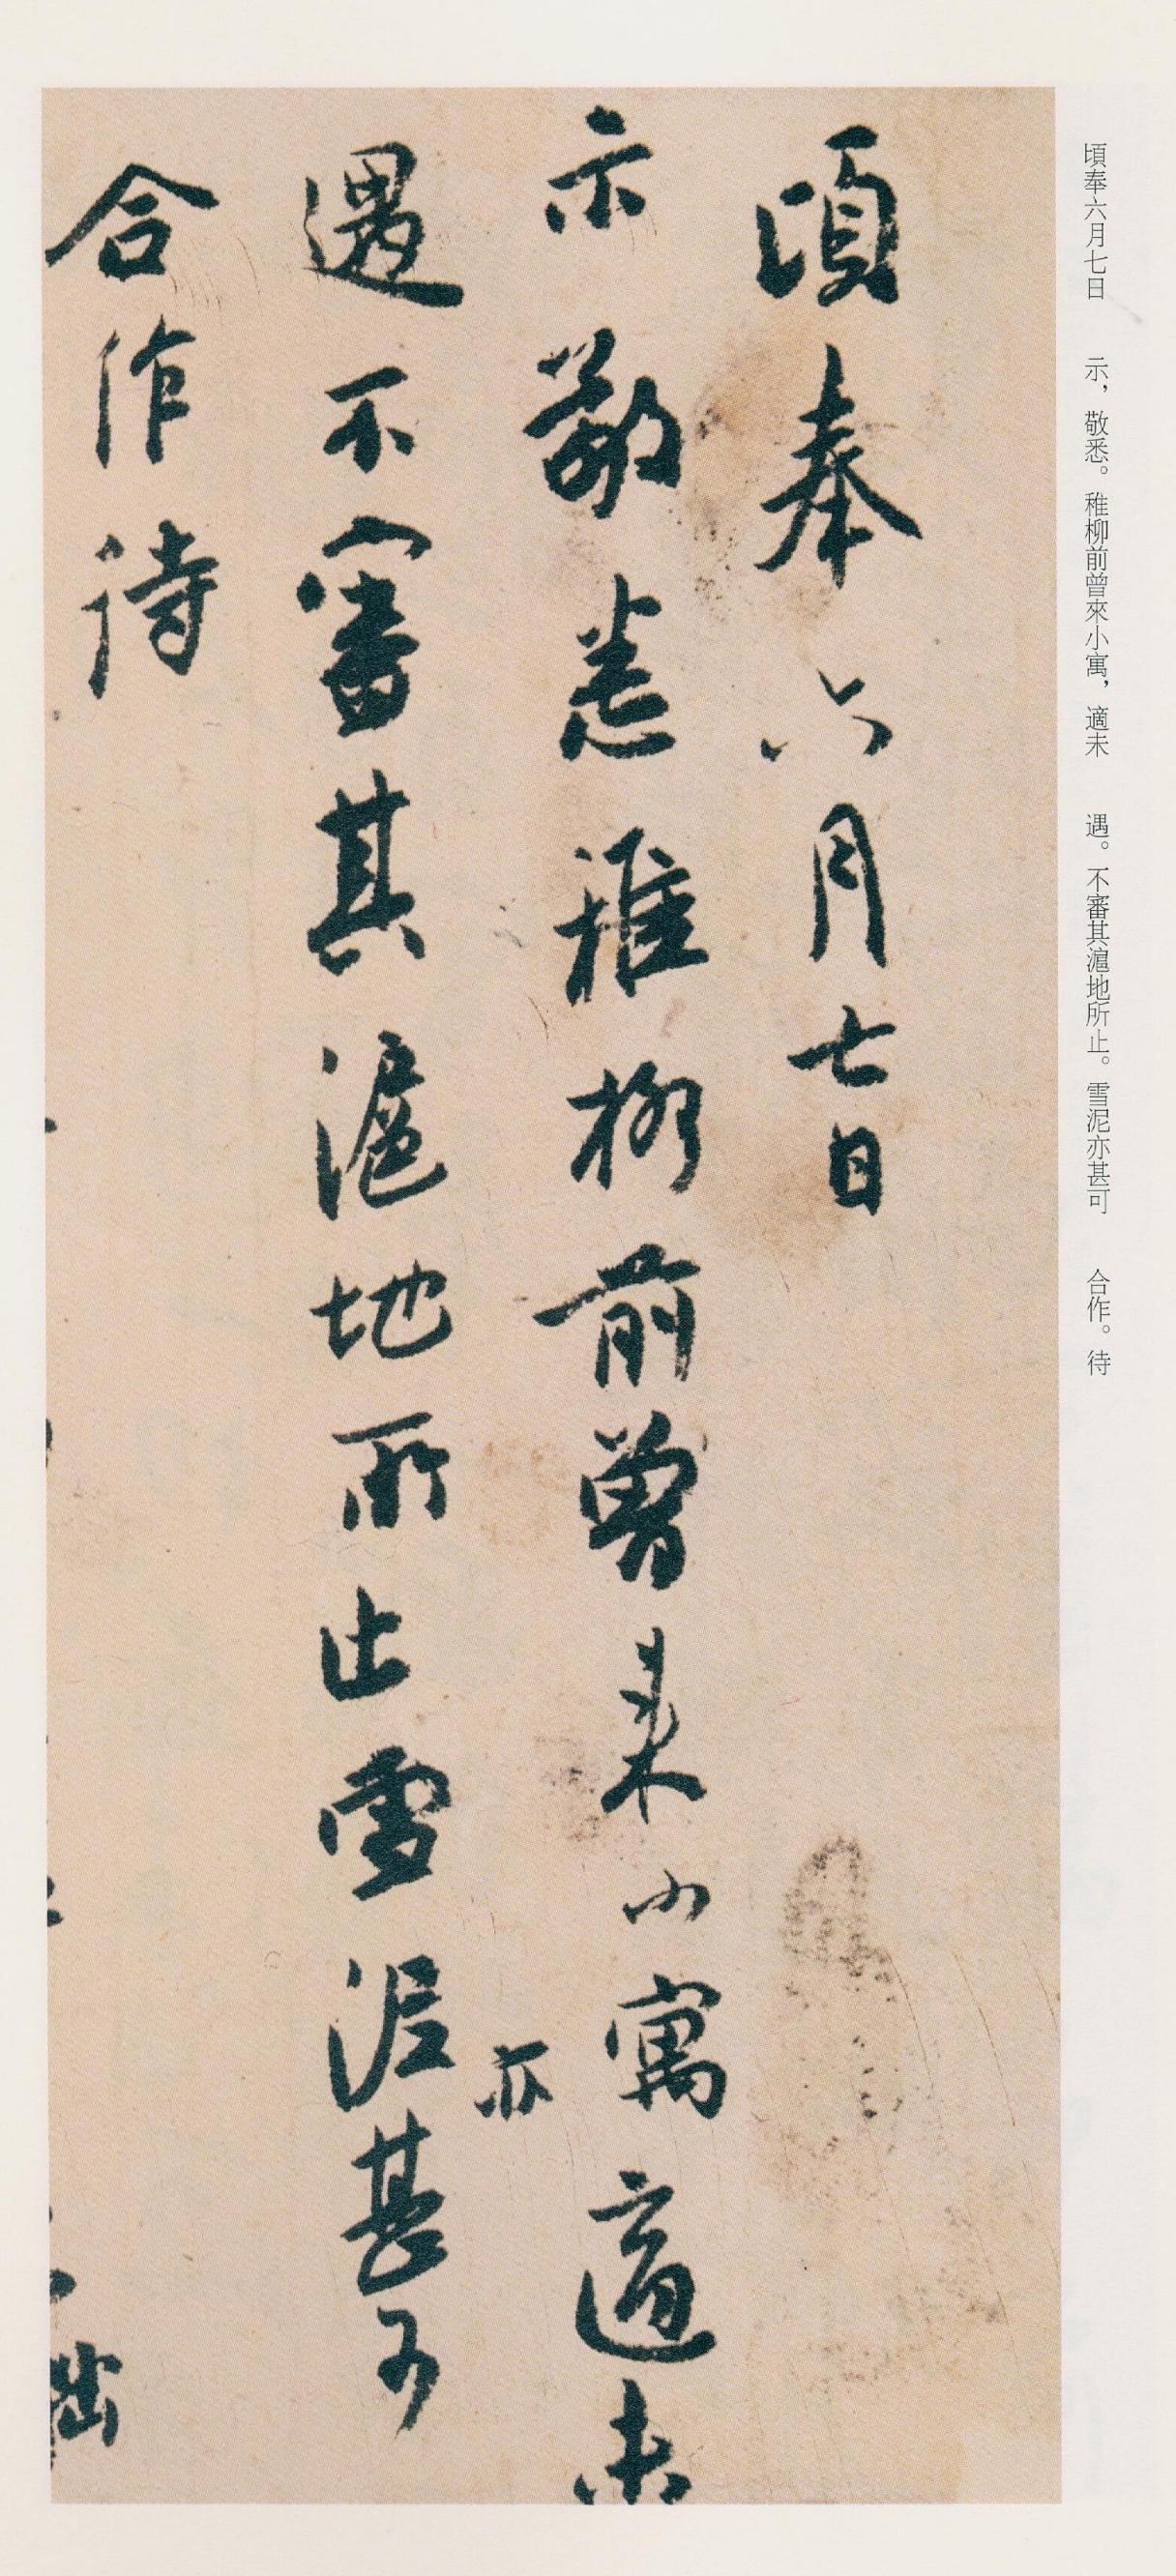 頃奉六月七日　示，敬悉。稚柳前曾來小寓，適未　遇。不審其滬地所止。雪泥亦甚可　合作。待
頃奉六月七日
示敬悉稚柳前曾来小寓適未
遇不審其滬地所止雪泥亦甚可
合作待